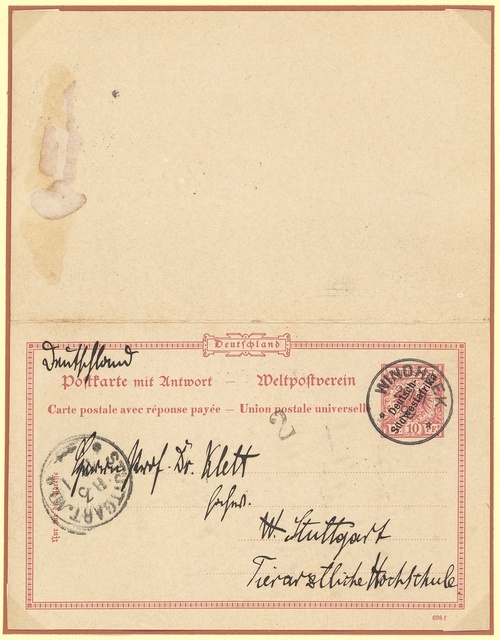 Deutschland
Deutschland
Postkarte mit Antwort — Weltpostverein
Carte postale avec réponse payée — Union postale universelle
WINDHOEK
Deutsch-
Südwestafrika
10
STUTTGART
Herrn Prof. Dr. Klett
Hochw.
W. Stuttgart
Tierarztliche Hochschule
698 f